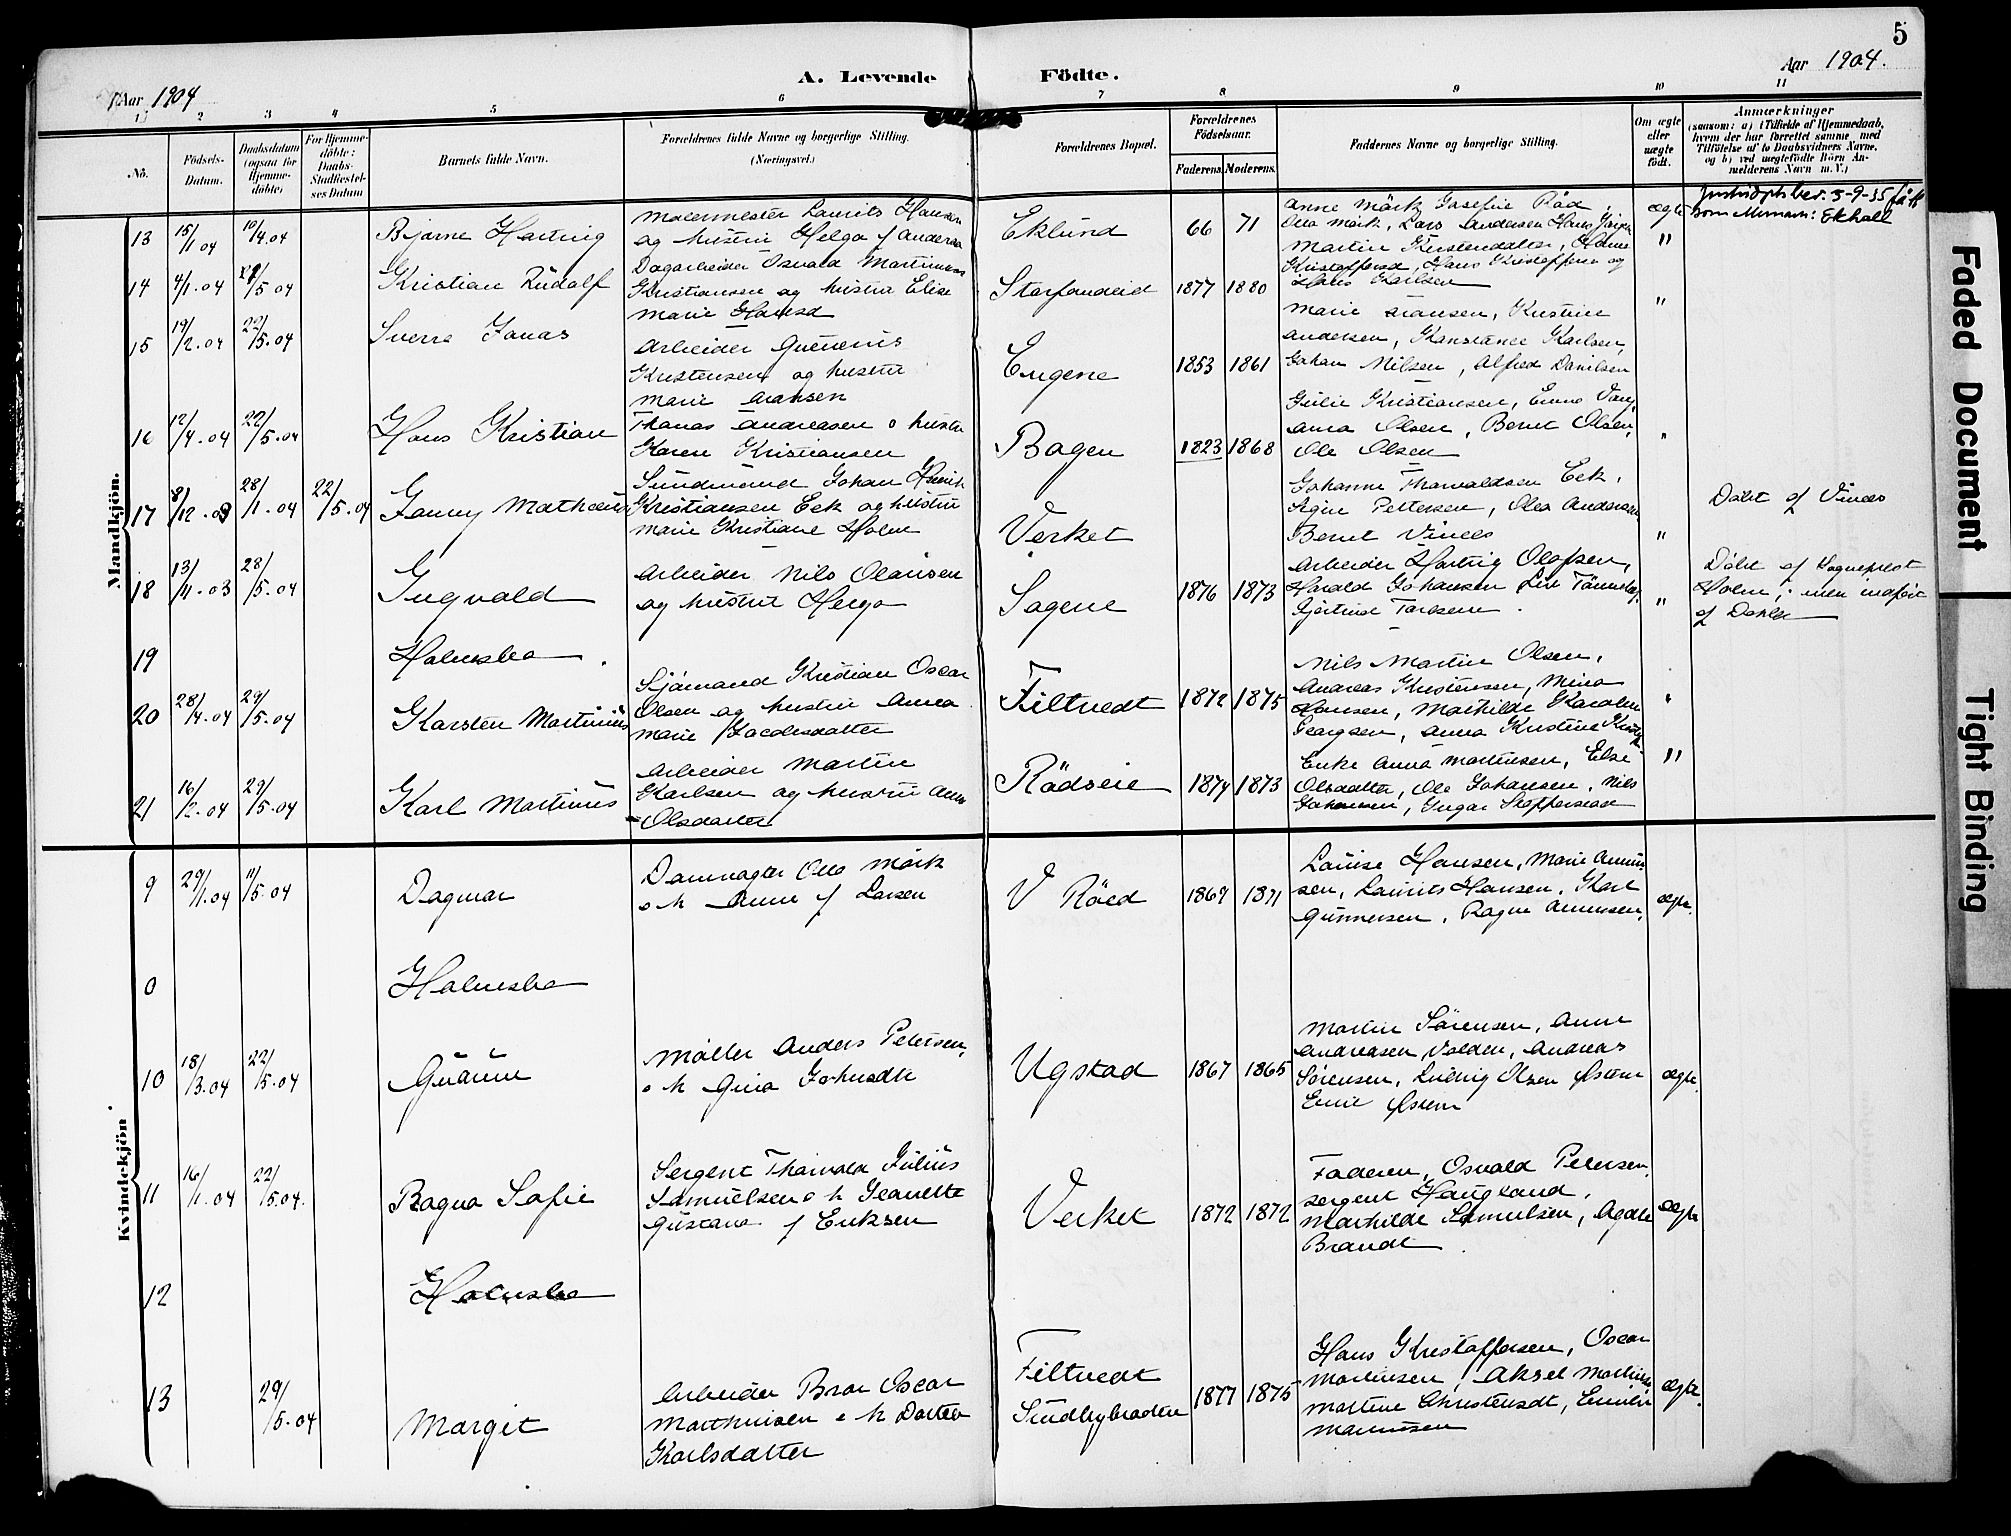 5
Aar 1904
A. Levende Födte.
Aar 1904.
1 2 3 4 5 6 7 8 9 10 11
No.
Födsels-
Datum.
Daabsdatum
(ogsaa for
Hjemme-
döbte)
For Hjemme-
döbte:
Daabs-
Stadfæstel-
ses Datum
Barnets fulde Navn.
Forældrenes fulde Navne og borgerlige Stilling.
(Næringsvei.)
Forældrenes Bopæl.
Forældrenes
Födselsaar.
Faderens. Moderens.
Faddernes Navne og borgerlige Stilling.
Om ægte
eller
uægte
født.
Anmærkninger
(saasom: a) i Tilfælde af Hjemmedaab,
hvem der har forrettet samme med
Tilföielse af to Daabsvidners Navne,
og b) ved uægtefödte Börn An-
melderens Navn m. V.)
Mandkjön.
13 15/1 04 10/4.04 Bjarne Hartvig
Malermester Laurits Hansen
og hustru Helga f Andersen
Eklund 66 71
Anne Mörk, Josefine Röd,
Otto Mörk, Lars Andersen, Hans Jörgen
ægte
Justisdptsbr. 3-9-35 fått
som slernavn: Ekhall
14 4/1.04 /5 04 Kristian Rudolf
Dagarbeider Osvald Martinius
Kristiansen og hustru Elise
Marie Hansd
Storsandeid 1877 1880
Martin Kristendatter,
Kristoffersd, Hans Kristoffersen og
Hans Karlsen
"
15 19/2.04 22/5.04 Sverre Jonas
Arbeider Gunerius
Kristensen og hustru
Marie Aransen
Engene 1853 1861
Marie Hansen, Kristine
Andersen, Konstance Karlsen,
Johan Nilsen, Alfred Danilsen
"
16 12/4.04 22/5.04 Hans Kristian
Thomas Andreasen o hustru
Karen Kristiansen
Bagen 1823 1868
Julie Kristiansen, Emma
Anna Olsen, Bernt Olsen,
Ole Olsen
"
17 8/12.03 28/1.04 22/5.04 Fanny Mathæus
Sundmand Johan Henrik
Kristiansen Eek og hustru
Marie Kristiane Holm
Verket
Johanne Thorvaldsen Eek,
Signe Pettersen, Olea Andersen
Bernt Vines
"
Döbt af Vinæs
18 13/11.03 28/5.04 Ingvald
Arbeider Nils Olausen
og hustru Helga
Sagene 1876 1873
Arbeider Hartvig Olafsen,
Harald Johansen
Gjertrud Torksen.
"
Döbt af Sogneprest
Holm, men indfört
af Dahle
19 Holmsbo.
20 28/4.04 29/5.04 Karsten Martinius
Sjömand Kristian Oscar
Olsen og hustru Anna
Marie f Jacobsdatter
Filtvedt 1872 1875
Nils Martin Olsen,
Andreas Kristensen, Mina
Hansen, Mathilde Karoline
Georgsen, Anna Kristine
"
21 16/2.04 29/5.04 Karl Martinius
Arbeider Martin
Karlsen og hustru Anna
Olsdatter
Rödseie 1874 1873
Enke Anna Martinsen, Else
Olsdatter, Ole Johansen, Nils
Johansen, Ingar Steffensen
"
Kvindekjön
9 29/1.04 11/5.04 Dagmar
Damvagter Otto Mörk
o h Anne f Larsen
V Röed 1867 1871
Lovise Hansen, Marie Amun-
sen, Laurits Hansen, Karl
Gunnersen, Ragne Amunsen,
ægte.
0 Holmsbo
10 18/3.04 22/5.04 Gudrun
Möller Anders Petersen,
o h Gina Johnsdtr
Ugstad 1867 1865
Martin Sörensen, Anne
Andreasen Volden, Andreas
Sörensen, Ludvig Olsen Östern
Emie Östern
ægte.
11 16/1.04 22/5.04. Ragna Sofie
Sergent Thorvald Julius
Samuelsen o h Jeanette
Gustava f Eriksen
Verket 1872 1872
Faderen, Osvald Petersen.
Sergent Haugland,
Mathilde Samuelsen, Agate
Brandt
ægte
12 Holmsbo
13 29/5.04 Margit
Arbeider Bror Oscar
Marthinsen o h Dortea
Karlsdatter
Filtvedt
Sundbybraaten 1877 1875
Hans Kristoffersen, Oscar
Martinsen, Aksel Martinsen
Martine Christensdt, Emilie
Marinussen
ægte.
Faded Document
Tight Binding